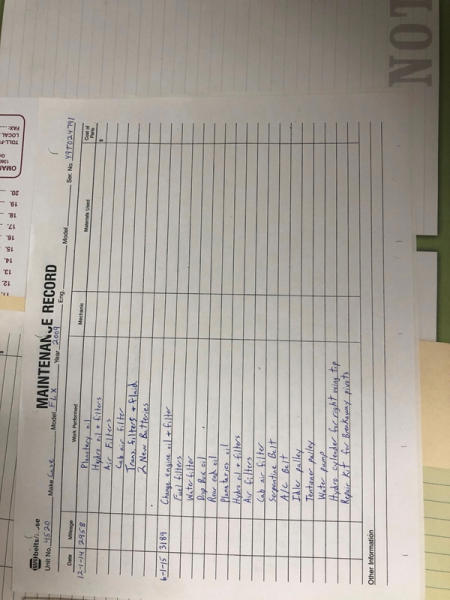 NOT
MAINTENANCE RECORD
Unit No. 4520 Make Case Model FLX Year 2009 Eng. Model Ser. No. Y9T024791
Date Mileage Work Performed Mechanic Materials Used Cost of Parts
12-1-14 2958 Planetary oil $
Hydro oil + filters
Air Filters
Cab air filter
Trans. filters + fluid
2 New Batteries
6-1-15 3189 Change engine oil + filter
Fuel filters
Water filter
Drop Box oil
Rear axle oil
Planetaries oil
Hydro oil + filters
Air filters
Cab air filter
Serpentine Belt
A/C Belt
Idler pulley
Tentener pulley
Water pump
Hydro cylinder for right wing tip
Repair Kit for Breakaway pivots
Other Information
OMA
TOLL-F
LOCAL
FAX:
20.
19.
18.
17.
16.
15.
14.
13.
12.
11.